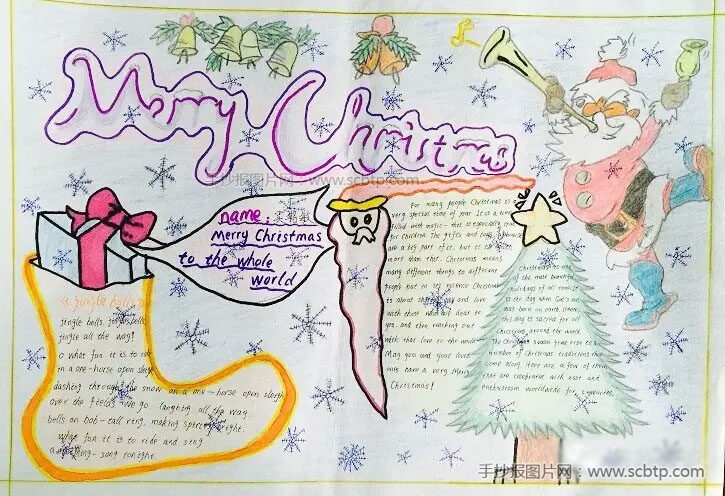 Merry Christmas
手抄报图片网：www.scbtp.com
name:
Merry Christmas
to the whole
world
<Jingle bells>
jingle bells, jingle bells,
jingle all the way!
O what fun it is to ride
in a one-horse open sleigh
dashing through the snow on a one-horse open sleigh
over the fields we go, laughing all the way.
bells on bob-tail ring, making spirits bright.
what fun it is to ride and sing
a song tonight.
For many people Christmas is a
very special time of year. It is a time
filled with magic
for children. The gifts and
are a big part of it, but it
more than that. Christmas means
many different things to different
people but in its essence Christmas
is about and love
with those who are dear to
you, and then reaching out
with that love to the world.
May you and your loved
ones have a very Merry
Christmas!
Christmas is one
of the most beautiful
holidays of all times. It
is the day when God's son
was born on earth. Hence,
this day is sacred for all
Christians around the world.
The Christmas season gives rise to a
number of Christmas traditions that
come along. Here are a few of them
are celebrated with ease and
enthusiasm worldwide for
手抄报图片网：www.scbtp.com